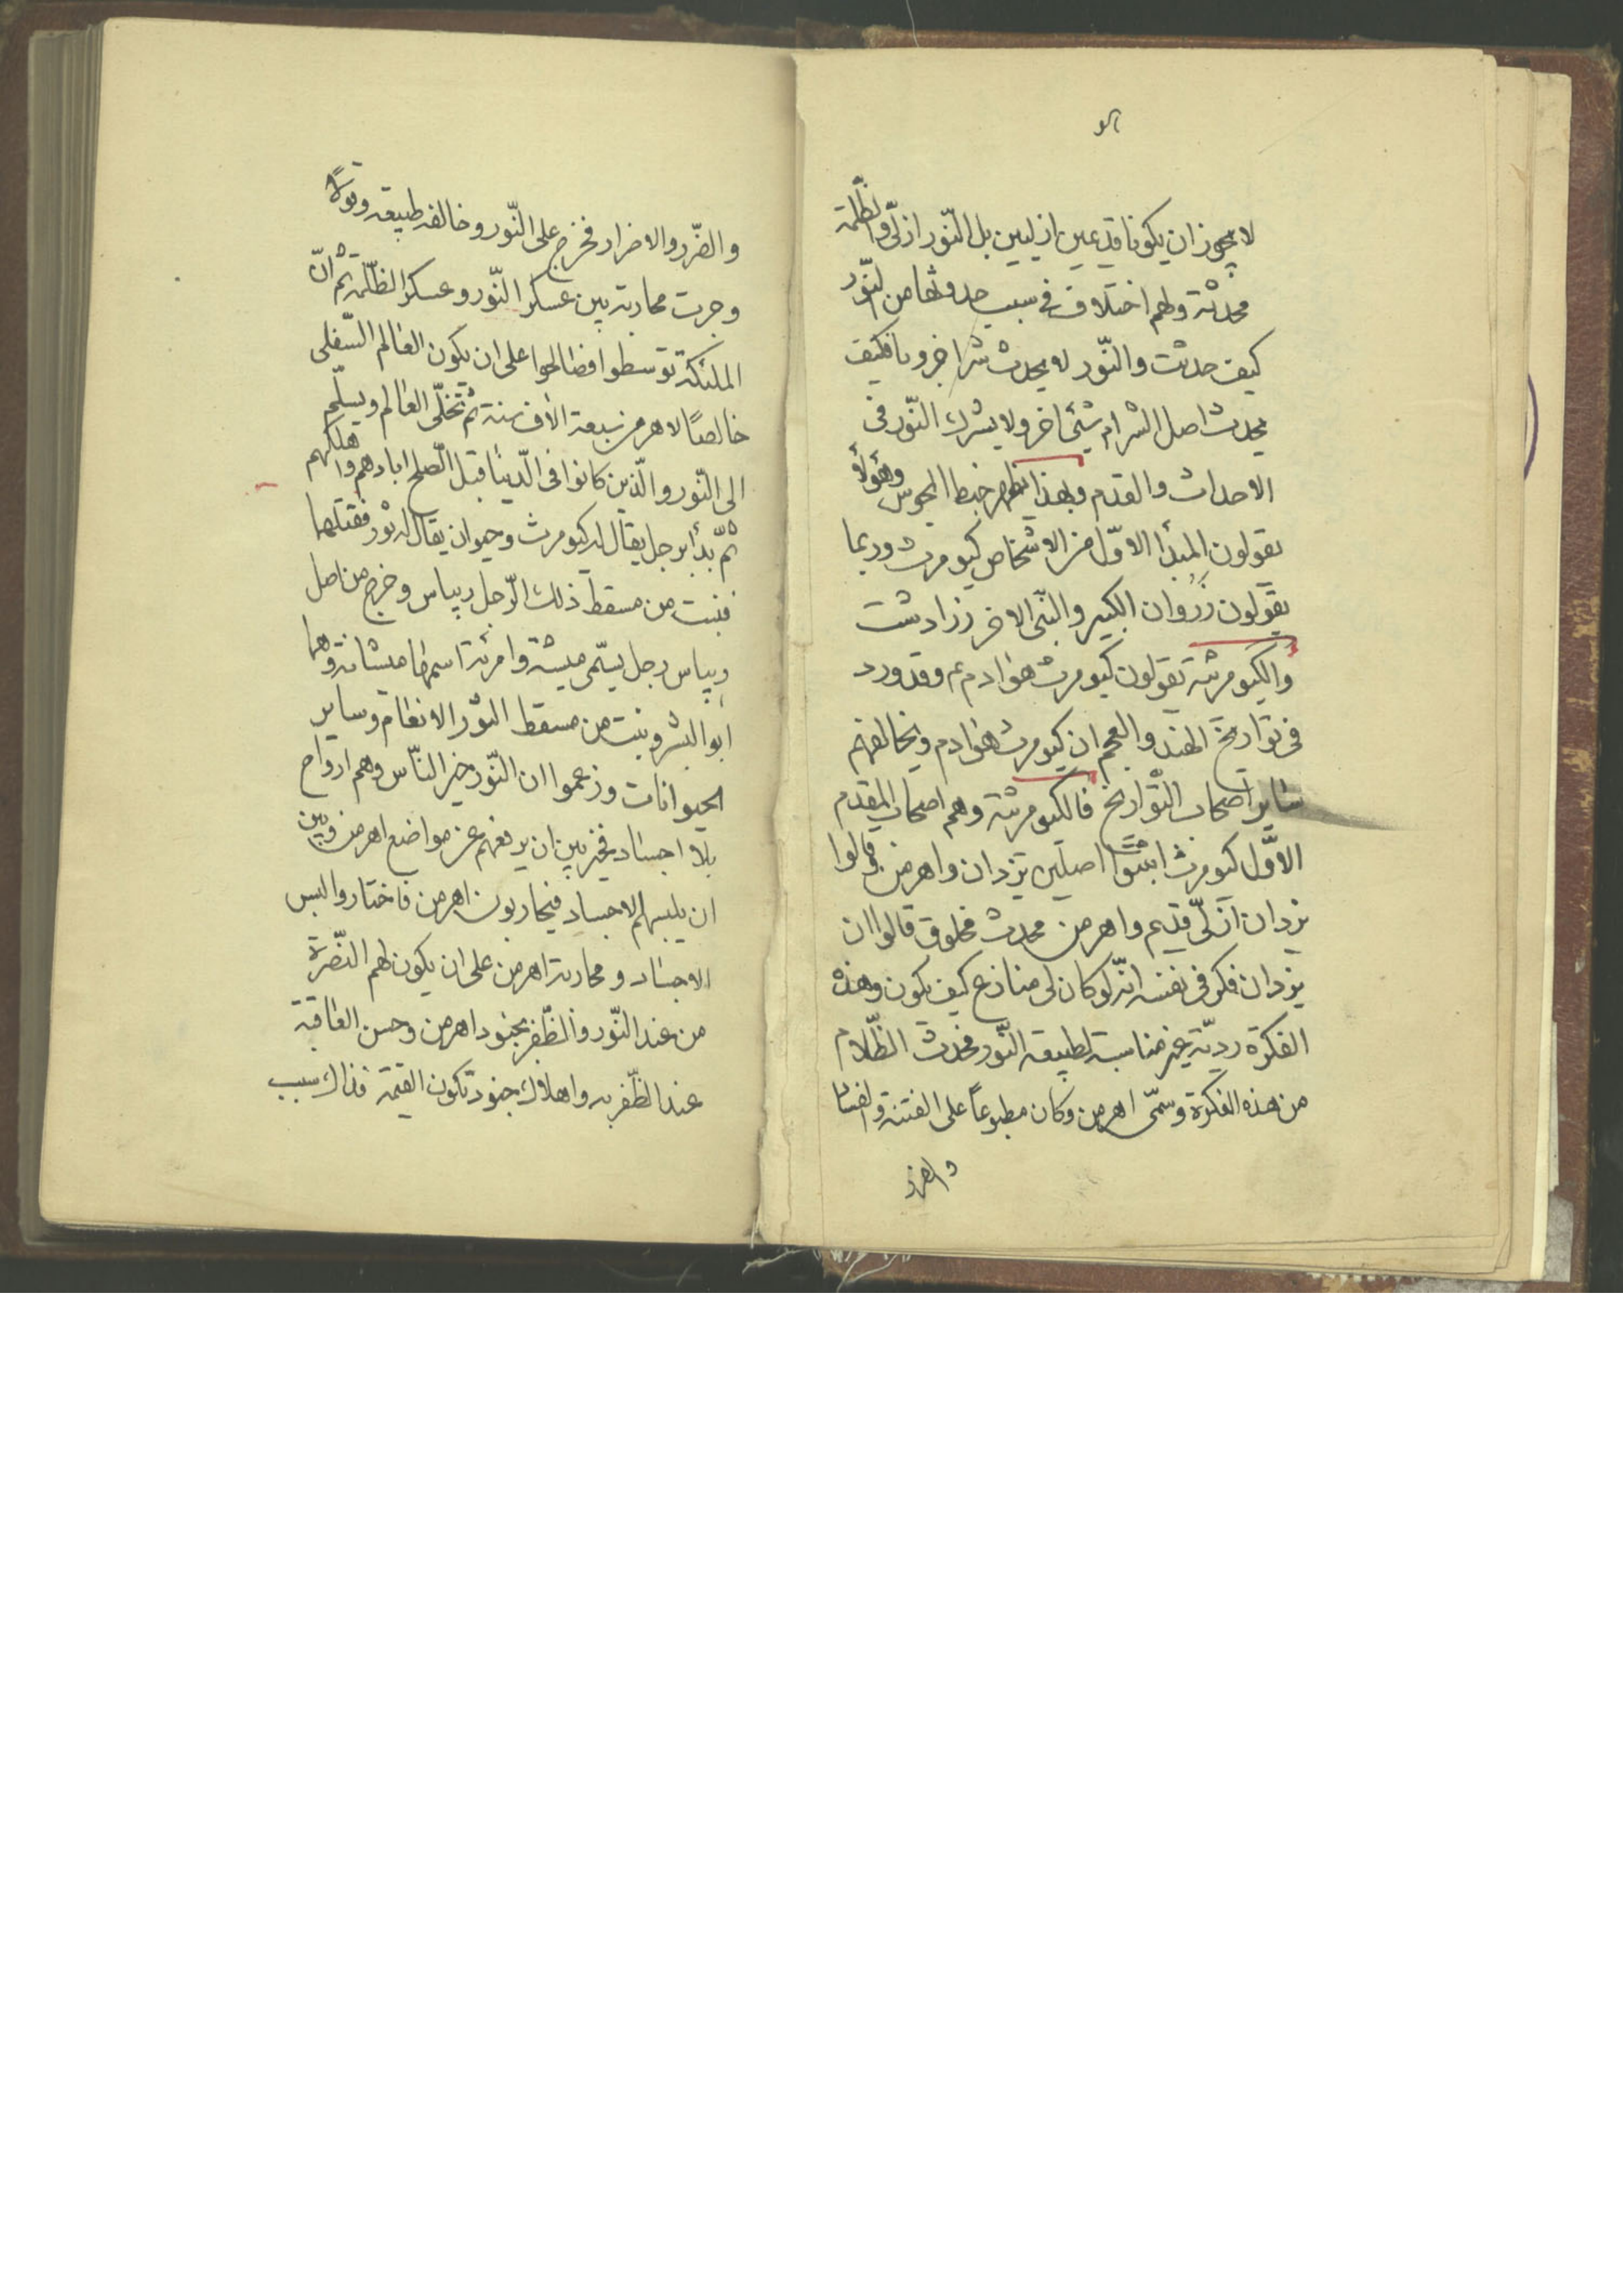 لا يجوز ان يكونا قديمين ازليين بل النّور ازلىّ والظّلمة
محدثة ولهم اختلاف فى سبب حدوثها من النّور
كيف حدثت والنّور لا يحدث شرا جزويا فكيف
يحدث اصل الشرام شيئ اخر ولا يشرك النّور فى
الاحداث والقدم وبهذا يظهر خبط المجوس وهؤلاء
يقولون المبدأ الاوّل من الاشخاص كيومرث وربما
يقولون زَرْوان الكبير والنّبى الاخر زرادشت
والكيومرثية يقولون كيومرث هو ادم عم وقد ورد
فى تواريخ الهند والعجم ان كيومرث هو ادم ويخالفهم
ساير اصحاب التّواريخ فالكيومرثية وهم اصحاب المقدم
الاوّل كيومرث اثبتوا اصلين يزدان واهرمن وقالوا
يزدان ازلىّ قديم واهرمن محدث مخلوق قالوا ان
يزدان فكر فى نفسه انّه لو كان لى منازع كيف يكون وهذه
الفكرة رديّة غير مناسبة لطبيعة النّور فحدث الظّلام
من هذه الفكرة وسمّى اهرمن وكان مطبوعاً على الفتنة والفساد
والضّرر والاضرار فخرج على النّور وخالفه طبيعة وقولاً
وجرت محاربة بين عسكر النّور وعسكر الظّلمة ثم انّ
الملئكة توسطوا فصالحوا على ان يكون العالم السّفلى
خالصًا لاهرمن سبعة الاف سنة ثم تخلّى العالم ويسلّم
الى النّور والّذين كانوا فى الدّنيا قبل الصّلح ابادهم واهلكهم
ثمّ بدأ برجل يقال له كيومرث وحيوان يقال له ثور فقتلهما
فنبت من مسقط ذلك الرّجل ريباس وخرج من اصل
ريباس رجل يسمّى ميشة وامرئة اسمها ميشانة وهما
ابوا البشر ونبت من مسقط الثّور الانعام وساير
الحيوانات وزعموا ان النّور خير النّاس وهم ارواح
بلا اجساد فخير بين ان يرفعهم عن مواضع اهرمن وبين
ان يلبسهم الاجساد فيحاربون اهرمن فاختاروا لبس
الاجساد ومحاربة اهرمن على ان يكون لهم النّصرة
من عند النّور والظّفر بجنود اهرمن وحسن العاقبة
عند الظّفر به واهلاك جنوده تكون القيمة فذاك سبب